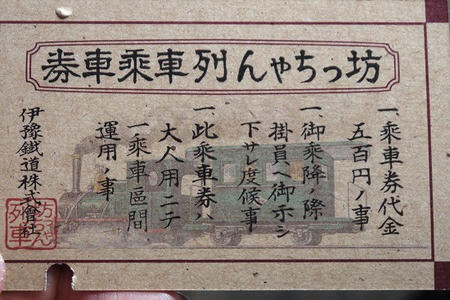 坊っちゃん列車乗車券
一、乗車券代金
五百円ノ事
一、御乗降ノ際
掛員ヘ御示シ
下サレ度候事
一、此乗車券ハ
大人用ニテ
一乗車區間
運用ノ事
伊豫鐵道株式會社
坊っちゃん
列車